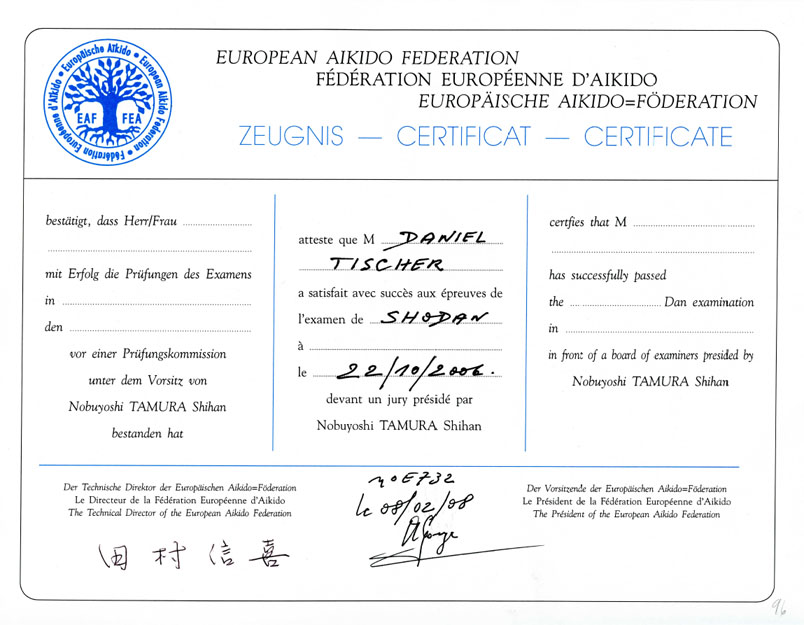 Europäische Aikido • European Aikido Federation • Fédération Européenne d'Aikido •
EAF FEA
EUROPEAN AIKIDO FEDERATION
FÉDÉRATION EUROPÉENNE D'AIKIDO
EUROPÄISCHE AIKIDO=FÖDERATION
ZEUGNIS — CERTIFICAT — CERTIFICATE
bestätigt, dass Herr/Frau
mit Erfolg die Prüfungen des Examens
in
den
vor einer Prüfungskommission
unter dem Vorsitz von
Nobuyoshi TAMURA Shihan
bestanden hat
atteste que M DANIEL
TISCHER
a satisfait avec succès aux épreuves de
l'examen de SHODAN
à
le 22/10/2006.
devant un jury présidé par
Nobuyoshi TAMURA Shihan
certfies that M
has successfully passed
the Dan examination
in
in front of a board of examiners presided by
Nobuyoshi TAMURA Shihan
Der Technische Direktor der Europäischen Aikido=Föderation
Le Directeur de la Fédération Européenne d'Aikido
The Technical Director of the European Aikido Federation
田村信喜
n° E732
le 08/02/08
Der Vorsitzende der Europäischen Aikido=Föderation
Le Président de la Fédération Européenne d'Aikido
The Président of the European Aikido Federation
96